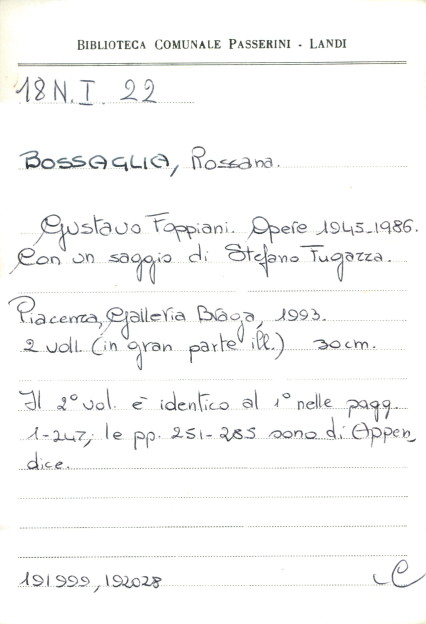 BIBLIOTECA COMUNALE PASSERINI - LANDI
18 N. I 22
BOSSAGLIA, Rossana.
Gustavo Foppiani. Opere 1945-1986.
Con un saggio di Stefano Fugazza.
Piacenza, Galleria Braga, 1993.
2 voll. (in gran parte ill.) 30 cm.
Il 2° vol. è identico al 1° nelle pagg.
1-247; le pp. 251-285 sono di Appen_
dice.
191999, 192028